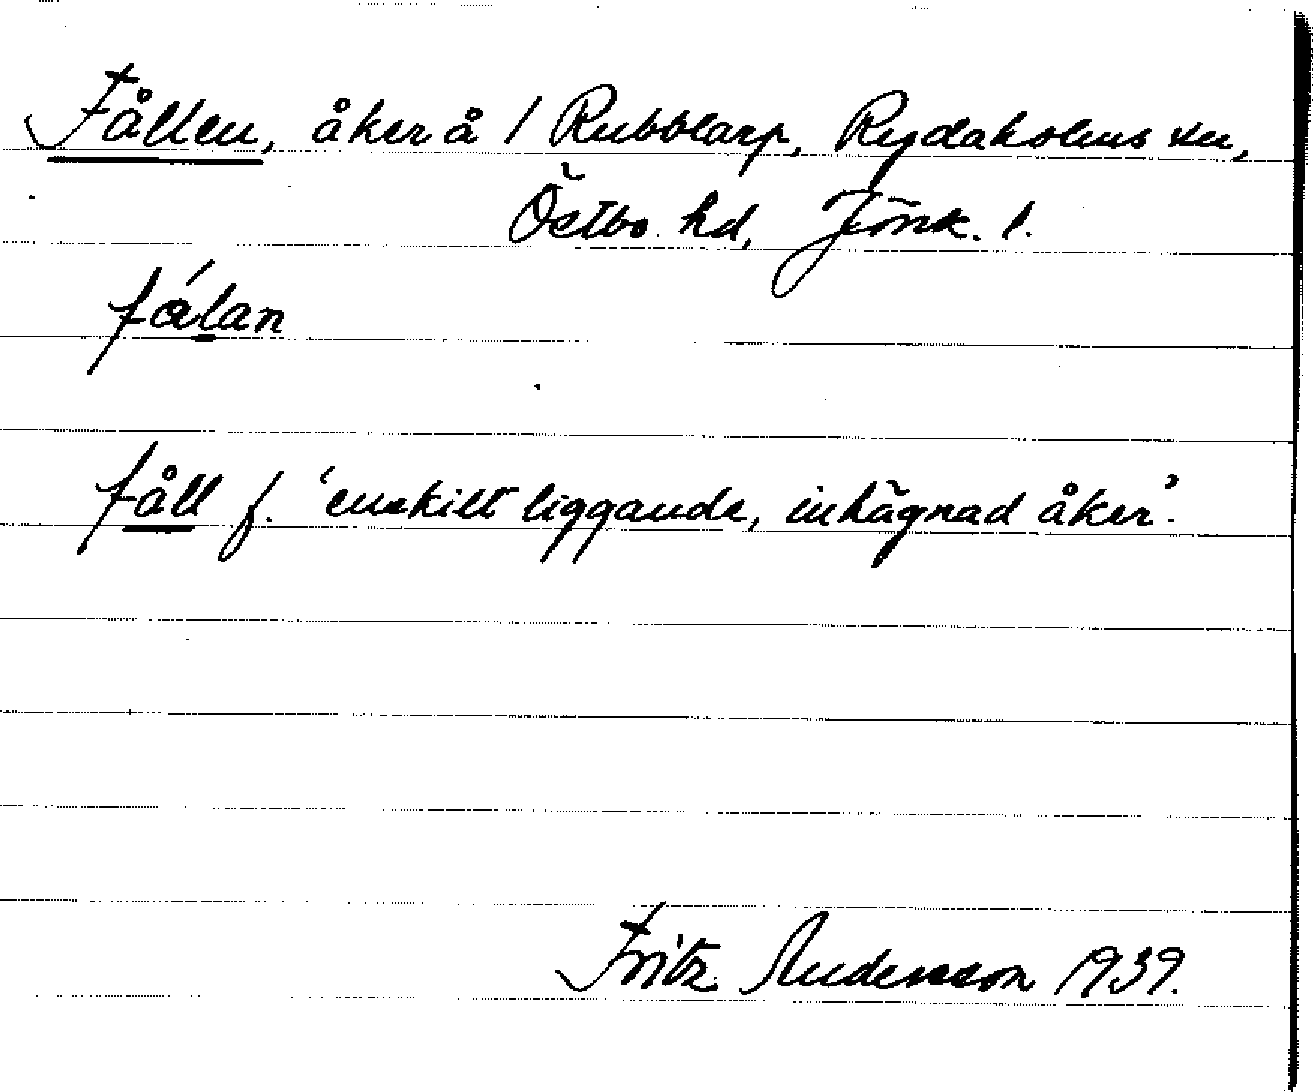 Fållen, åker å 1 Rubblarp, Rydaholms sn,
Östbo hd, Jönk. l.
fálan
fåll f. 'enskilt liggande, inhägnad åker'.
Fritz Andersson 1939.